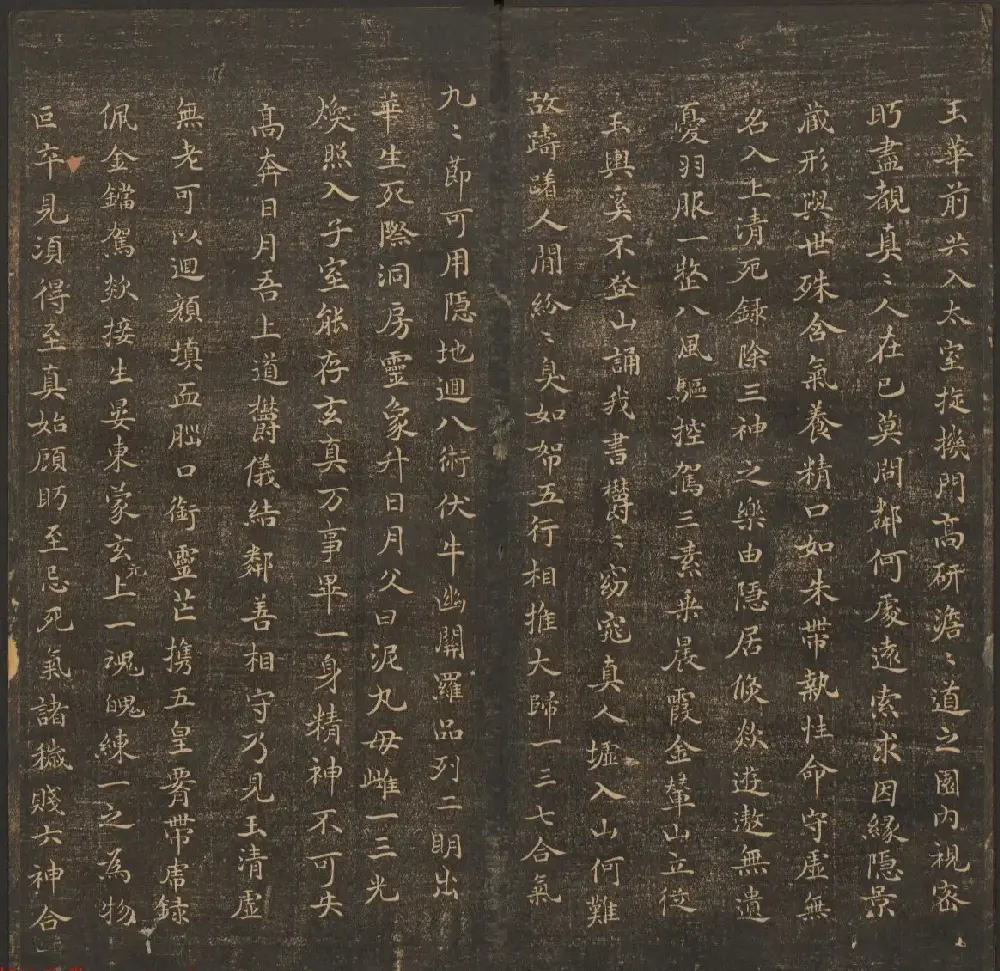 玉華前共入太室璇璣門高研澹〻道之園內視密
眄盡覩真〻人在己莫問鄰何處遠索求因緣隱景
藏形與世殊含氣養精口如朱帶執性命守虛無
名入上清死録除三神之樂由隱居倐欻遊遨無遺
憂羽服一整八風驅控駕三素乗晨霞金輦山立從
玉輿奚不登山誦我書欝〻窈窕真人墟入山何難
故躊躇人間紛〻臭如帤五行相推大歸一三七合氣
九〻節可用隱地迴八術伏牛幽闕羅品列二明出
華生死際洞房靈象升日月父曰泥丸毋雌一三光
煥照入子室能存玄真万事畢一身精神不可失
髙奔日月吾上道欝儀結鄰善相守乃見玉清虛
無老可以迴顔填血腦口銜靈芒携五皇署帶席録
佩金鐺駕欻接生晏東蒙玄元上一魂魄練一之為物
叵卒見湏得至真始顧眄至忌死氣諸穢賤六神合